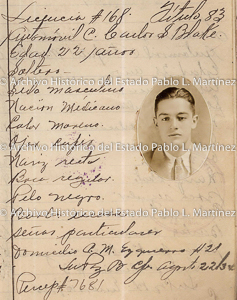 Licencia #168. Título 83
Automóvil C. Carlos S. Blake.
Edad 22 años
Soltero
Sexo masculino
Nación Mexicano
Color Moreno.
© Archivo Histórico del Estado Pablo L. Martínez
Nariz recta
Boca regular
Pelo negro.
© Archivo Histórico del Estado Pablo L. Martínez
Señas particulares
Domicilio M. Ezquerro #21
La Paz B. Cfa. Agosto 22/3
© Archivo Histórico del Estado Pablo L. Martínez
#7681